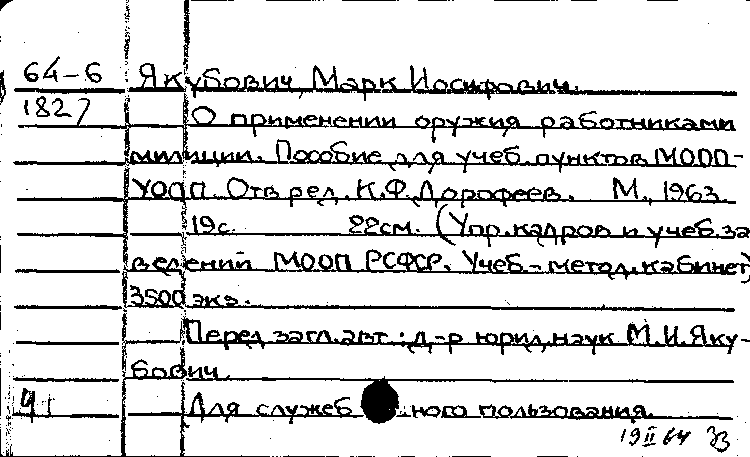 64-6 Якубович, Марк Иосифович.
1827 О применении оружия работниками
милиции. Пособие для учеб. пунктов МООП-
УООП. Отв. ред. К.Ф. Дорофеев. М., 1963.
19 с. 22 см. (Упр. кадров и учеб. за
ведений МООП РСФСР. Учеб.-метод. кабинет)
3500 экз.
Перед загл. авт.: д-р юрид. наук М.И. Яку-
бович.
Для служеб ного пользования.
19 II 64